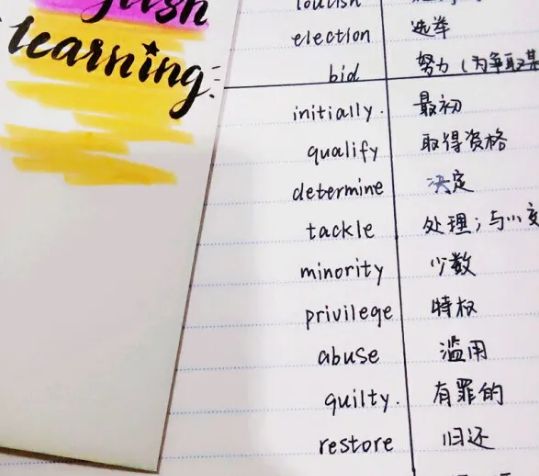 learning
election 选举
bid 努力(为争取某
initially. 最初
qualify 取得资格
determine 决定
tackle 处理;与
minority 少数
privilege 特权
abuse 滥用
guilty. 有罪的
restore 归还